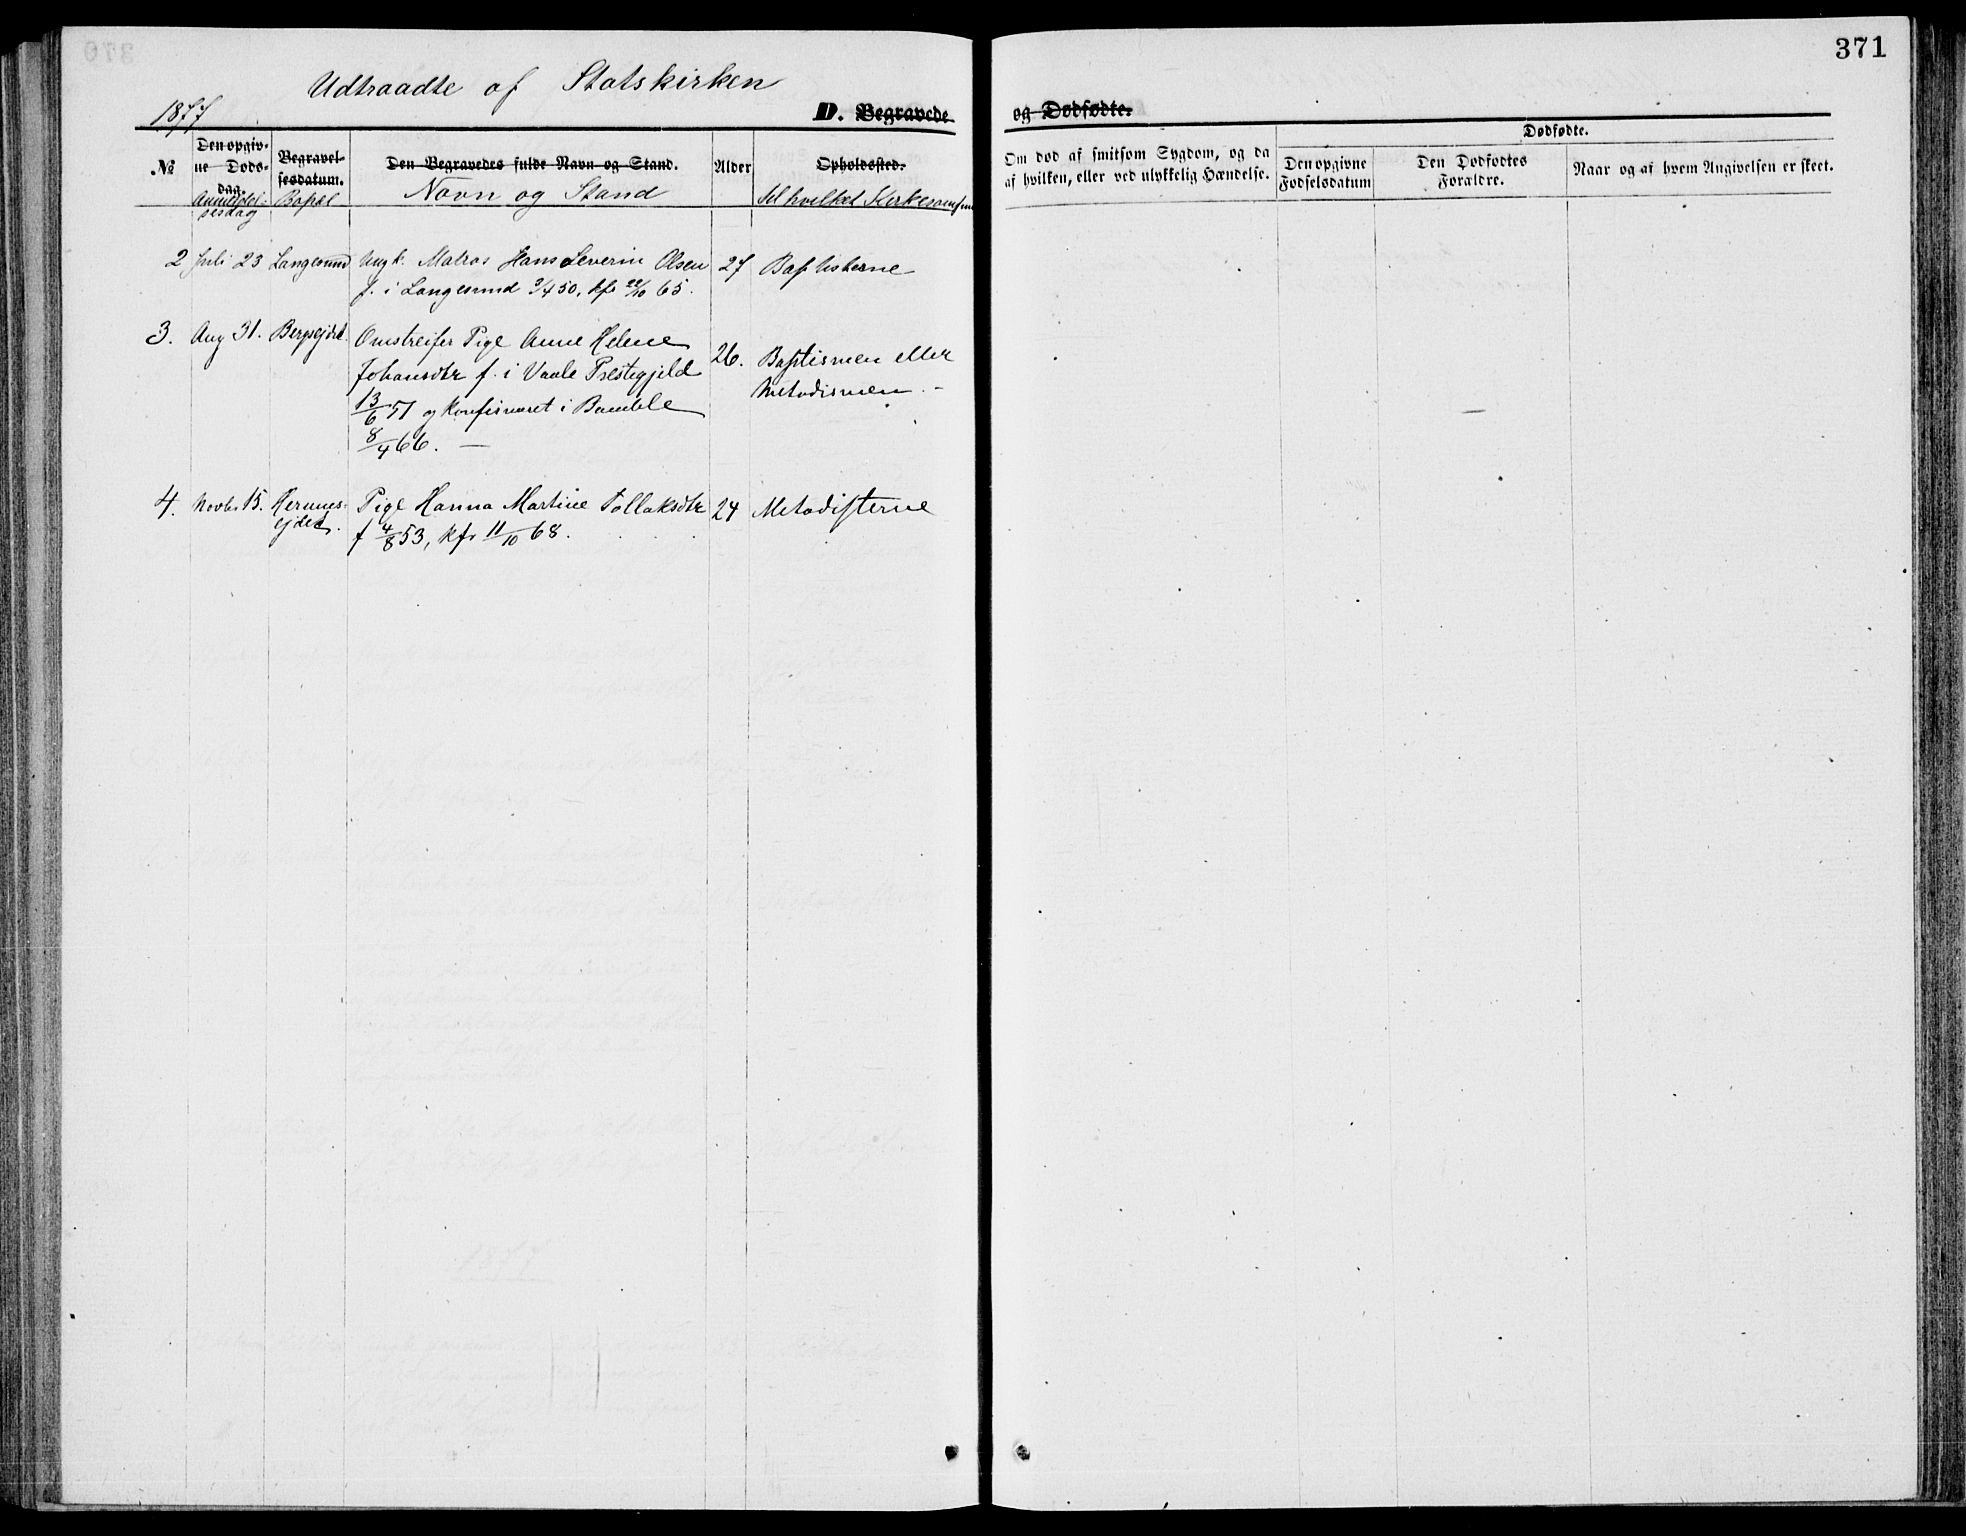 371
Udtraadte af Statskirken
1877
D. Begravede og Dødfødte.
№
Den opgiv-
ne Døds-
dag.
Anmeldel-
sesdag
Begravel-
sesdatum.
Bopæl
Den Begravedes fulde Navn og Stand.
Navn og Stand
Alder
Opholdssted.
til hvilket Kirkesamfund
Om død af smitsom Sygdom, og da
af hvilken, eller ved ulykkelig Hændelse.
Dødfødte.
Den opgivne
Fødselsdatum
Den Dødfødtes
Forældre.
Naar og af hvem Angivelsen er skeet.
2 Juli 23 Langesund Ungk. Matros Hans Severin Olsen 27 Baptisterne
f. i Langesund 2/4 50, kfr 22/10 65.
3. Aug 31. Omstreifer Pige Anne Helene 26. Baptismen eller
Johansdtr f. i Vaale Prestegjeld Metodismen. -
13/6 51 og konfirmeret i Bamble
8/4 66. —
4. Novbr 15. Pige Hanna Martine Tollaksdtr 24 Metodisterne
ejdet. f 4/8 53, kfr 11/10 68.